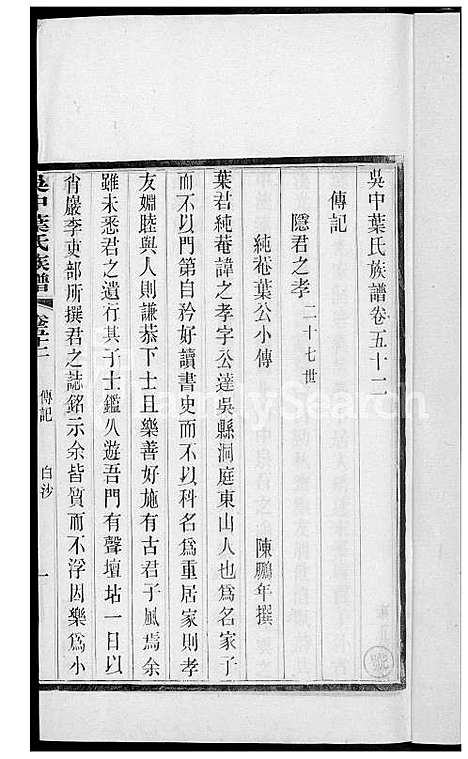 吳中葉氏族譜卷五十二
傳記
隱君之孝 二十七世
純菴葉公小傳 陳鵬年撰
葉君純菴諱之孝字公達吳縣洞庭東山人也為名家子
而不以門第自矜好讀書史而不以科名為重居家則孝
友婣睦與人則謙恭下士且樂善好施有古君子風焉余
雖未悉君之遺行其子士鑑久遊吾門有聲壇坫一日以
肖巖李吏部所撰君之誌銘示余皆質而不浮因樂為小
吳中葉氏族譜 卷五十二 傳記 白沙 一
FamilySearch